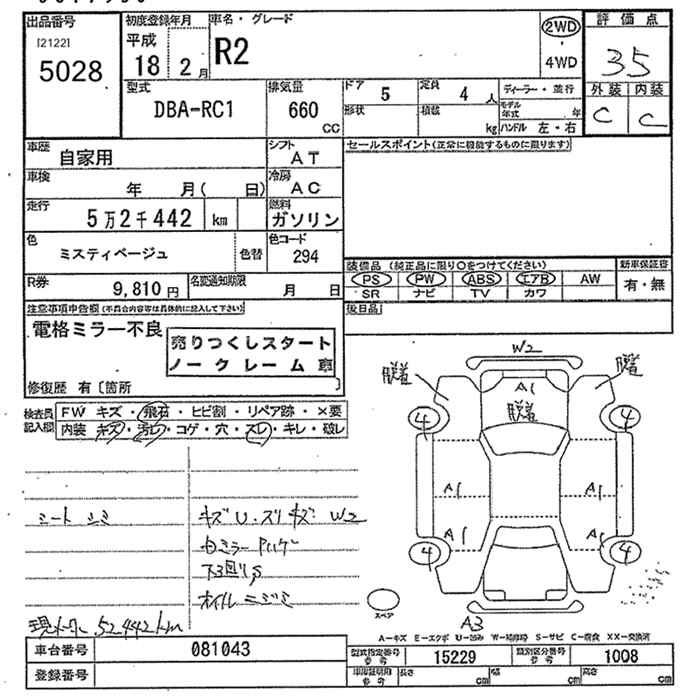 出品番号
I21221
5028
初度登録年月
平成
18 2 月
車名・グレード
R2
2WD
・
4WD
評価点
3.5
外装 内装
C C
型式
DBA-RC1
排気量
660
CC
ドア 5
形状
定員 4 人
積載 kg
ディーラー・並行
モデル年式 年
ハンドル 左・右
車歴
自家用
シフト
AT
車検
年 月( 日)
冷房
AC
走行
5万2千442 km
燃料
ガソリン
色
ミスティベージュ
色替
色コード
294
R券
9,810 円
名変通知期限
月 日
セールスポイント(正常に機能するものに限ります)
装備品 (純正品に限り○をつけてください)
PS PW ABS エアB AW
SR ナビ TV カワ
新車保証書
有・無
後日品
注意事項申告欄(不具合内容等は具体的に記入して下さい)
電格ミラー不良
売りつくしスタート
ノークレーム車
修復歴 有〔箇所 〕
検査員
記入欄
FW キズ・飛石・ヒビ割・リペア跡・×要
内装 キズ・汚レ・コゲ・穴・スレ・キレ・破レ
シートシミ
キズ U.スリキズ W2
下回りS
オイルニジミ
現メーター 52,442km
W2
脱着
脱着
A1
脱着
4
4
A1
A1
A1
A1
4
4
スペア
A3
A-キズ E-エクボ U-凹み W-補修跡 S-サビ C-腐食 XX-交換済
車台番号 081043
登録番号
型式指定番号
参考
15229
類別区分番号
参考
1008
車庫証明用
参考
長さ cm 幅 cm 高さ cm